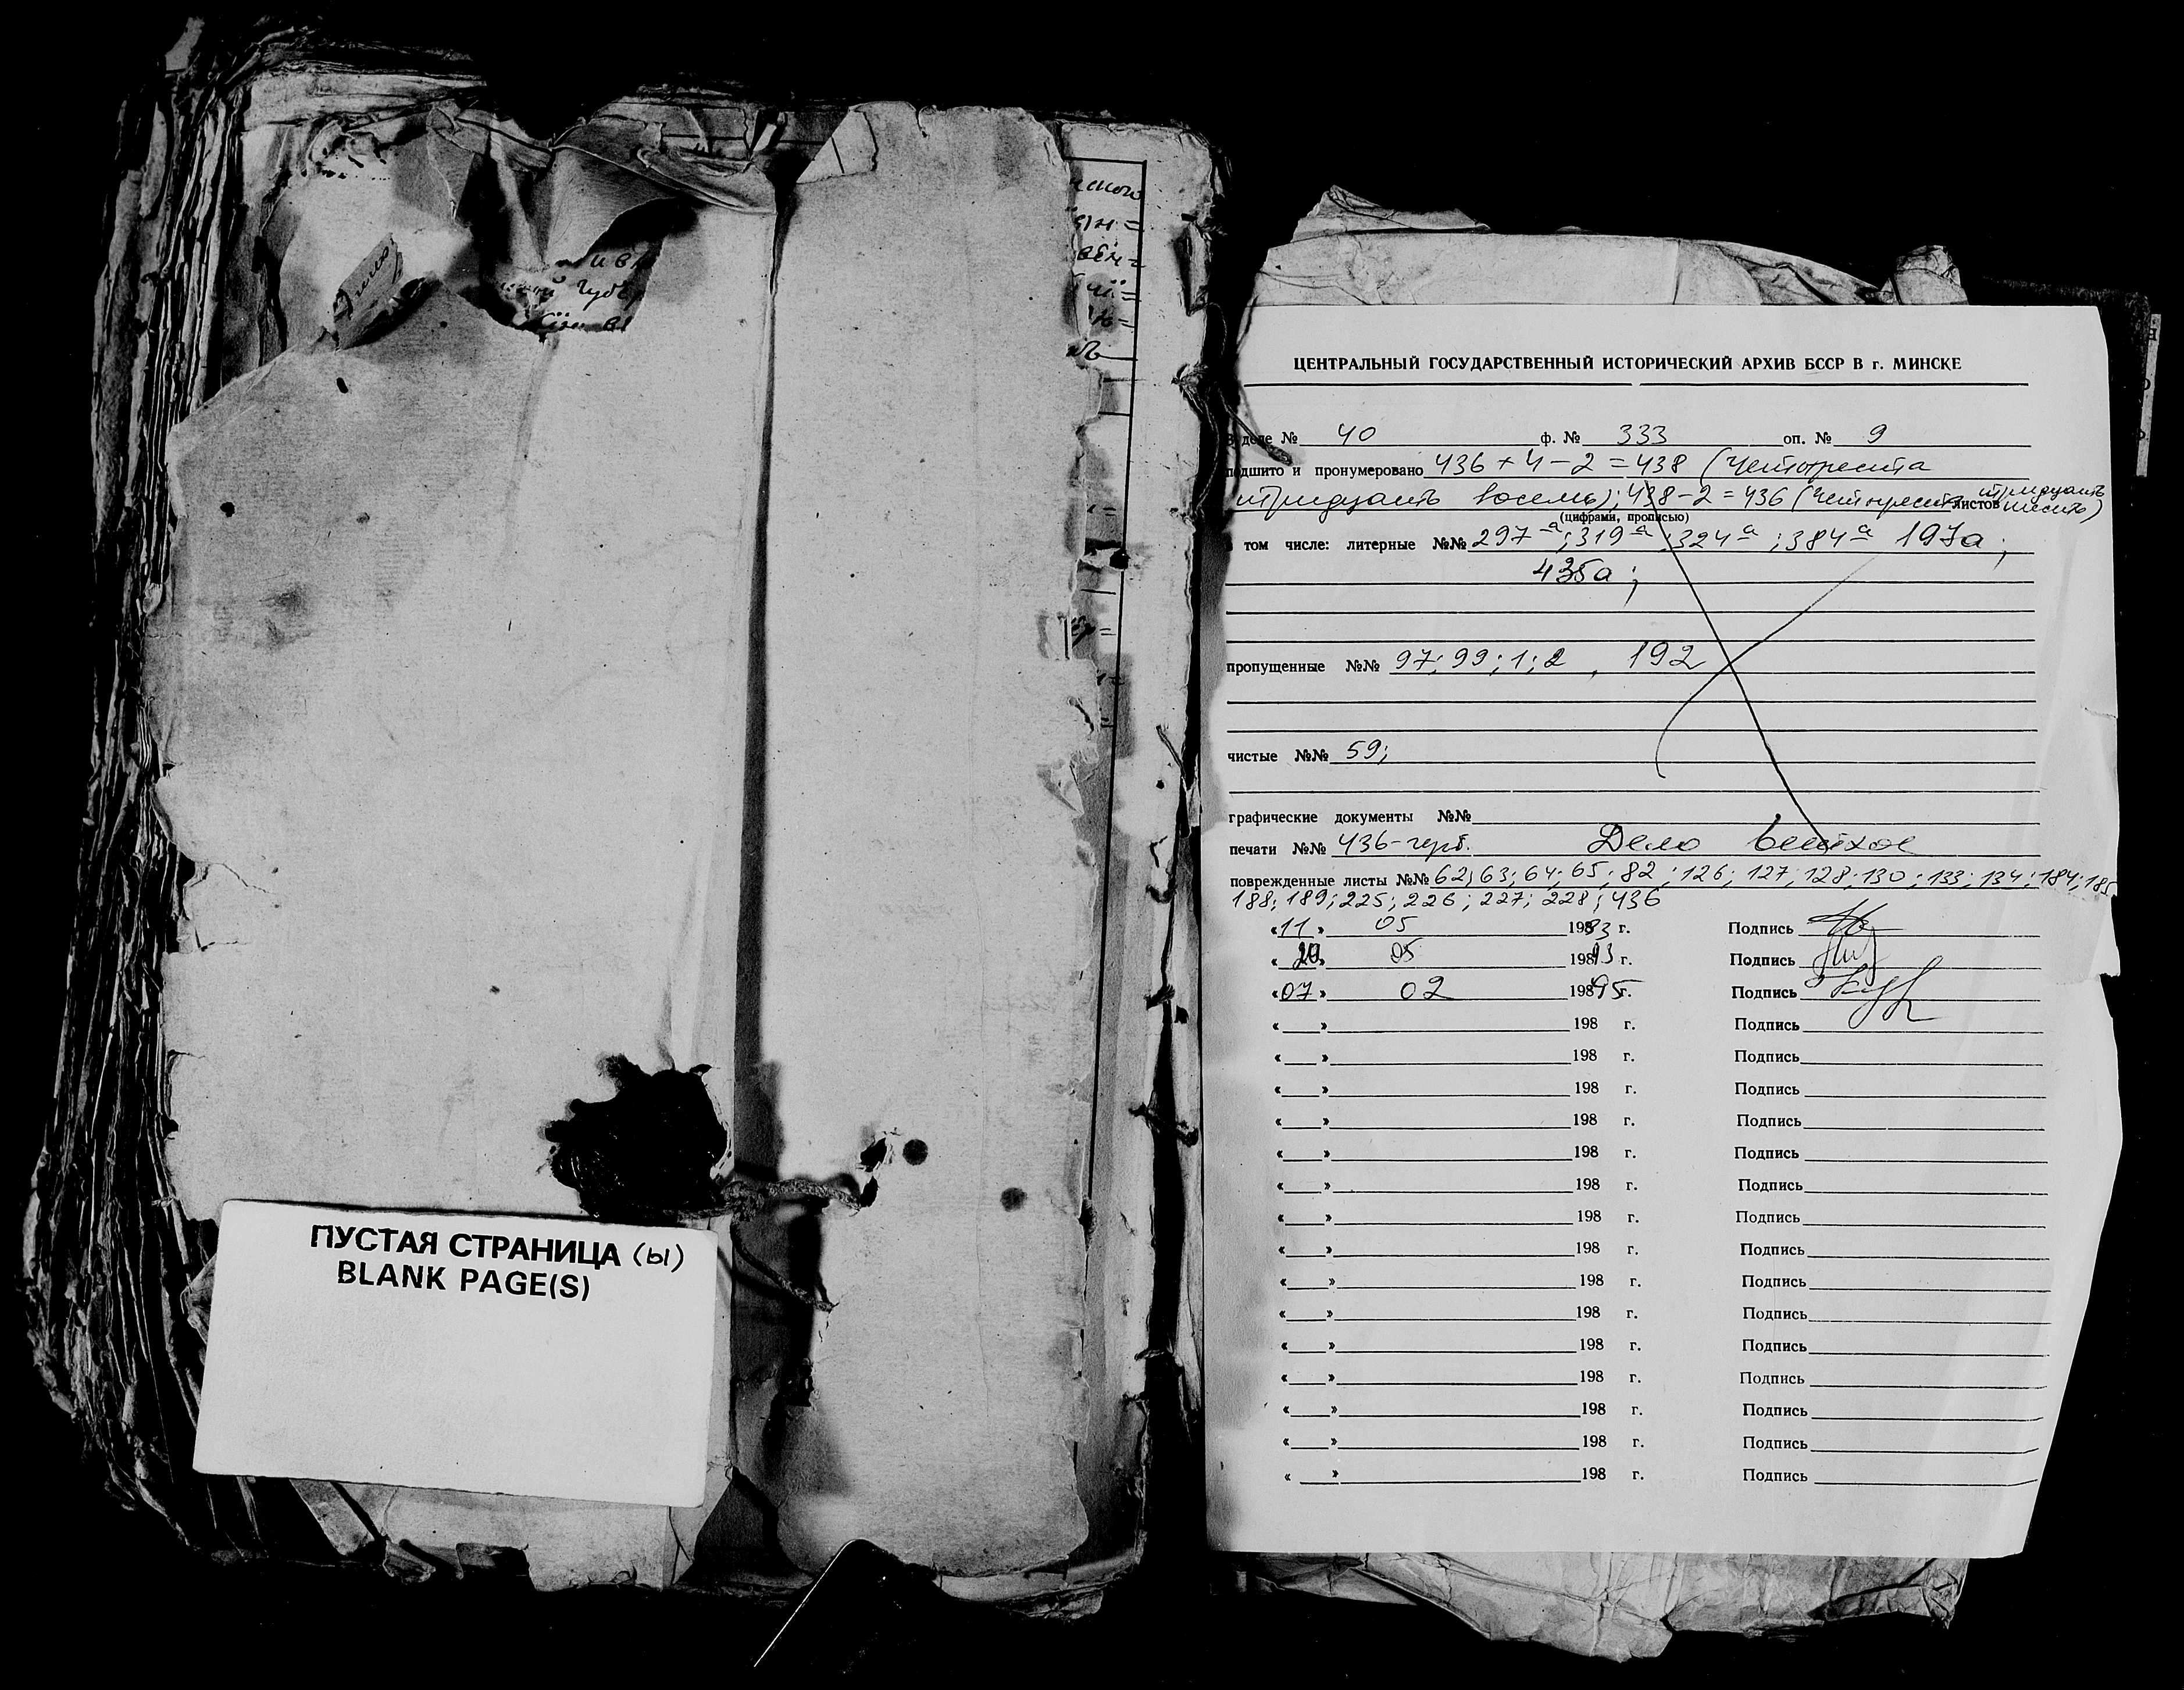 губ
ПУСТАЯ СТРАНИЦА (ы)
BLANK PAGE(S)
ЦЕНТРАЛЬНЫЙ ГОСУДАРСТВЕННЫЙ ИСТОРИЧЕСКИЙ АРХИВ БССР В г. МИНСКЕ
В деле № 40 ф. № 333 оп. № 9
подшито и пронумеровано 436 + 4 - 2 = 438 (четыреста
тридцать восемь); 438 - 2 = 436 (четыреста тридцать шесть) листов
(цифрами, прописью)
в том числе: литерные №№ 297а; 319а; 324а; 384а 197а;
435а;
пропущенные №№ 97; 99; 1; 2, 192
чистые №№ 59;
графические документы №№
печати №№ 436-герб. Дело ветхое
поврежденные листы №№ 62; 63; 64; 65; 82; 126; 127; 128; 130; 133; 134; 184; 185
188; 189; 225; 226; 227; 228; 436
«11» 05 198 г. Подпись
«20» 05 198 93 г. Подпись
«07» 02 198 95 г. Подпись
« » 198 г. Подпись
« » 198 г. Подпись
« » 198 г. Подпись
« » 198 г. Подпись
« » 198 г. Подпись
« » 198 г. Подпись
« » 198 г. Подпись
« » 198 г. Подпись
« » 198 г. Подпись
« » 198 г. Подпись
« » 198 г. Подпись
« » 198 г. Подпись
« » 198 г. Подпись
« » 198 г. Подпись
« » 198 г. Подпись